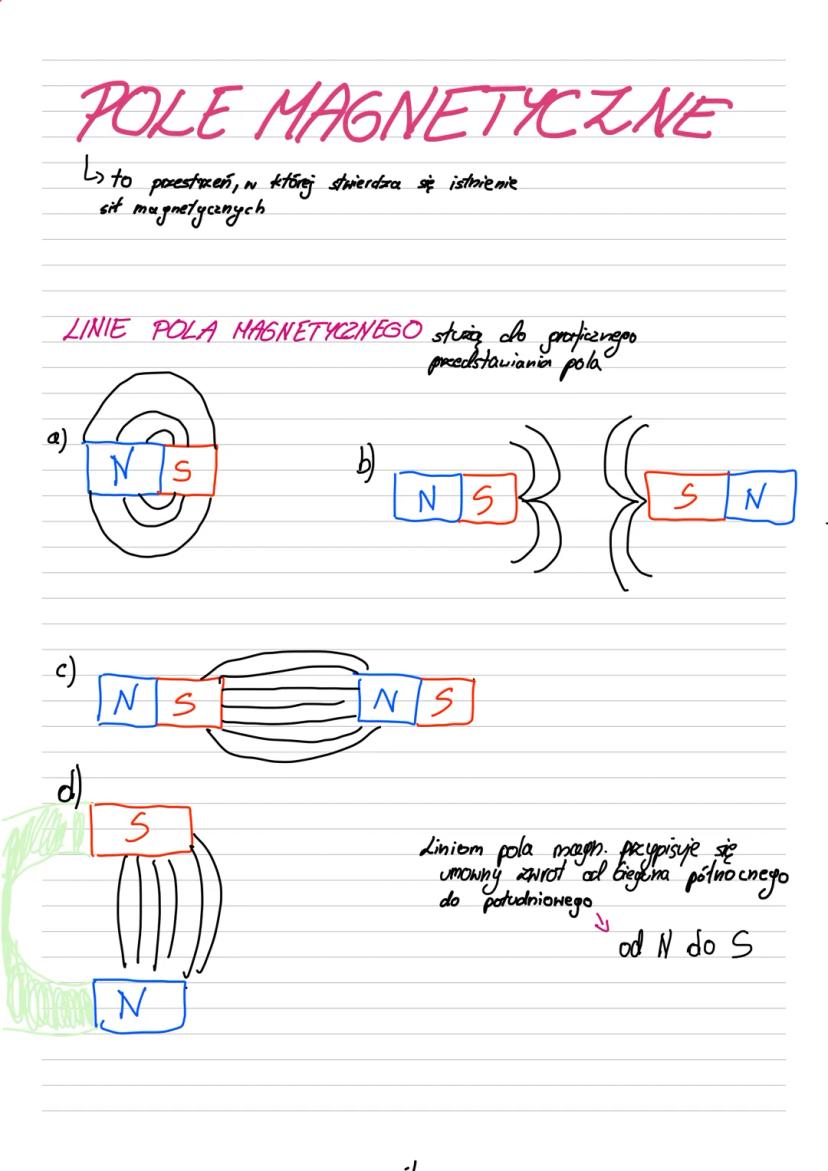 POLE MAGNETYCZNE
↳ to przestrzeń, w której stwierdza się istnienie
sił magnetycznych
LINIE POLA MAGNETYCZNEGO służą do graficznego
przedstawiania pola
a)
N S
b)
N S S N
c)
N S N S
d)
S
Liniom pola magn. przypisuje się
umowny zwrot od bieguna północnego
do południowego
od N do S
N